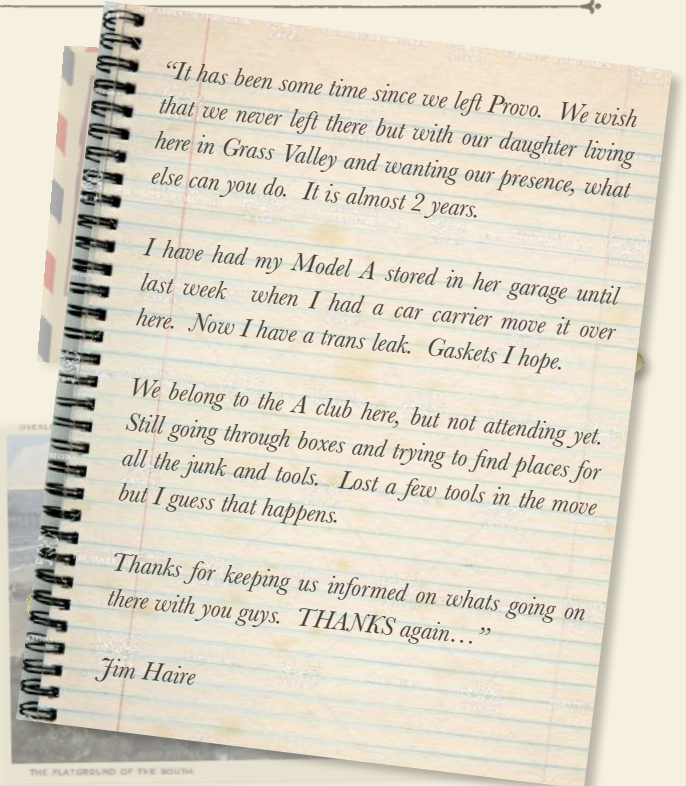 “It has been some time since we left Provo. We wish
that we never left there but with our daughter living
here in Grass Valley and wanting our presence, what
else can you do. It is almost 2 years.
I have had my Model A stored in her garage until
last week when I had a car carrier move it over
here. Now I have a trans leak. Gaskets I hope.
We belong to the A club here, but not attending yet.
Still going through boxes and trying to find places for
all the junk and tools. Lost a few tools in the move
but I guess that happens.
Thanks for keeping us informed on whats going on
there with you guys. THANKS again…”
Jim Haire
THE PLAYGROUND OF THE SOUTH